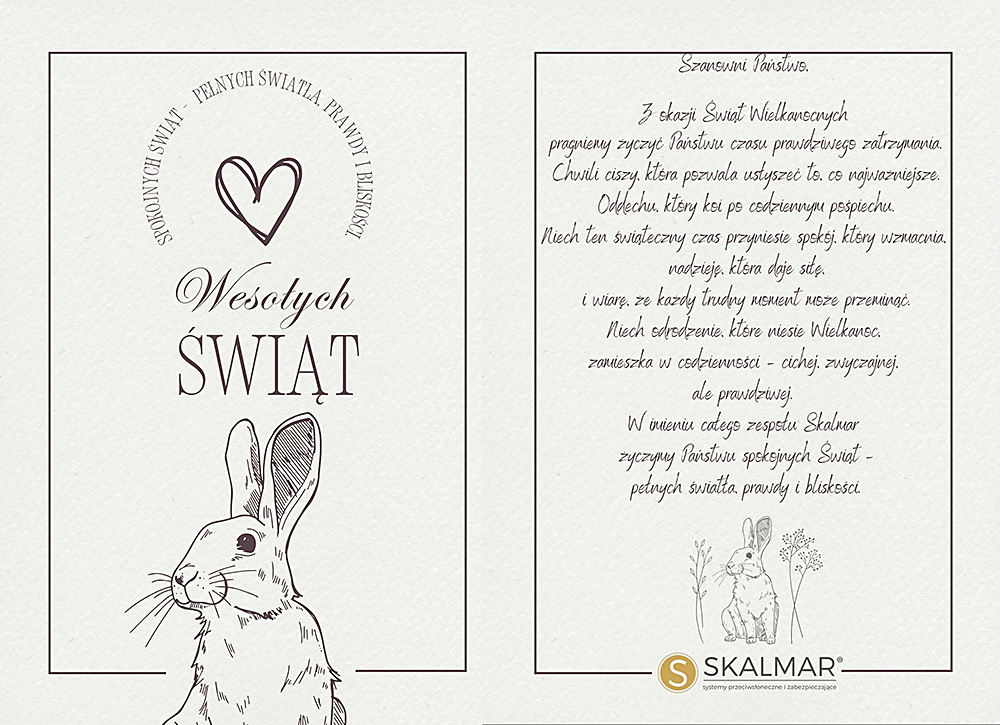 SPOKOJNYCH ŚWIĄT - PEŁNYCH ŚWIATŁA, PRAWDY I BLISKOŚCI.
Wesołych
ŚWIĄT
Szanowni Państwo,
Z okazji Świąt Wielkanocnych
pragniemy życzyć Państwu czasu prawdziwego zatrzymania.
Chwili ciszy, która pozwala usłyszeć to, co najważniejsze.
Oddechu, który koi po codziennym pośpiechu.
Niech ten świąteczny czas przyniesie spokój, który wzmacnia,
nadzieję, która daje siłę,
i wiarę, że każdy trudny moment może przeminąć.
Niech odrodzenie, które niesie Wielkanoc,
zamieszka w codzienności - cichej, zwyczajnej,
ale prawdziwej.
W imieniu całego zespołu Skalmar
życzymy Państwu spokojnych Świąt -
pełnych światła, prawdy i bliskości.
S SKALMAR®
systemy przeciwsłoneczne i zabezpieczające